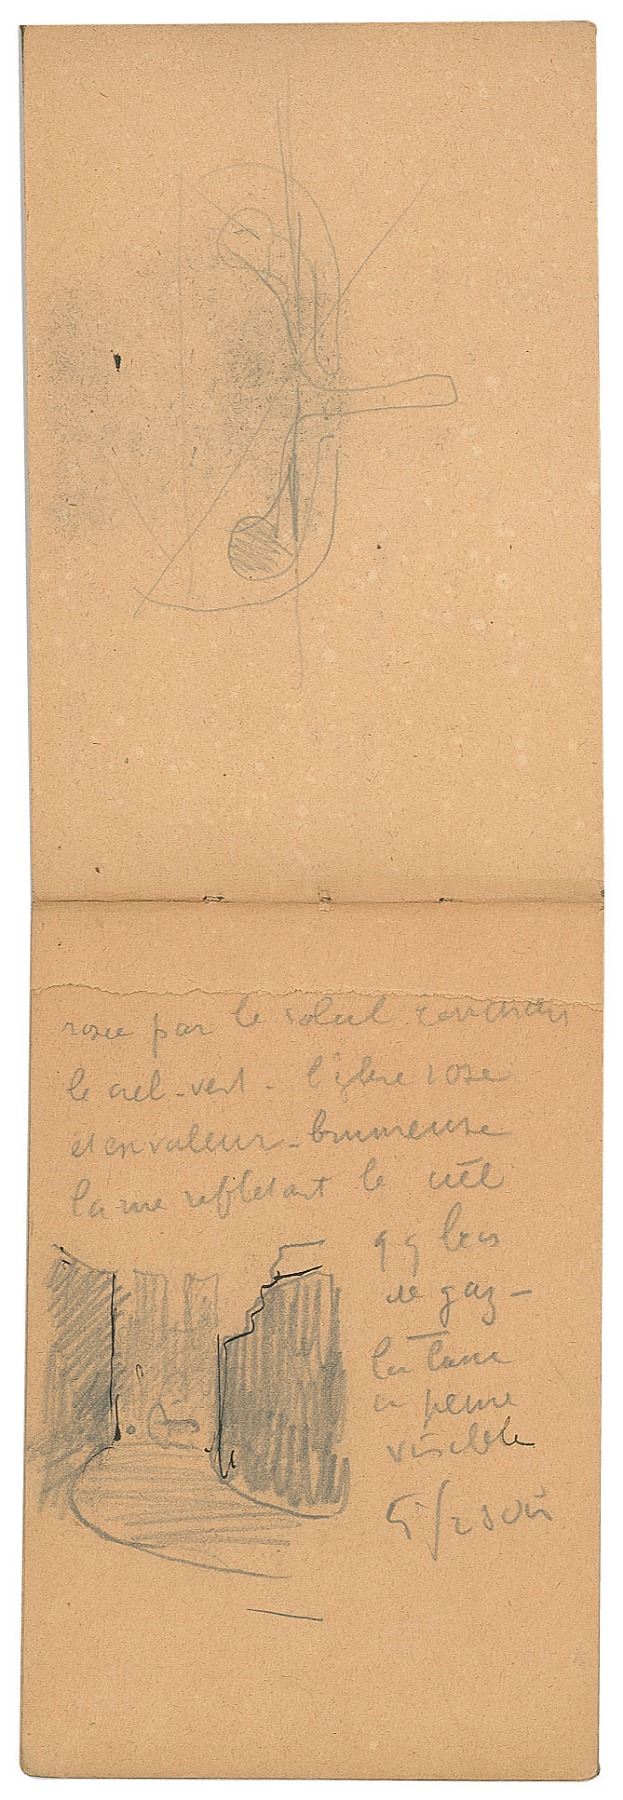 rosée par le soleil couchant
le ciel - vert - l'église rose
et en valeur - brumeuse
la rue reflétant le ciel
qq becs
de gaz -
la lune
à peine
visible
5 1/2 soir